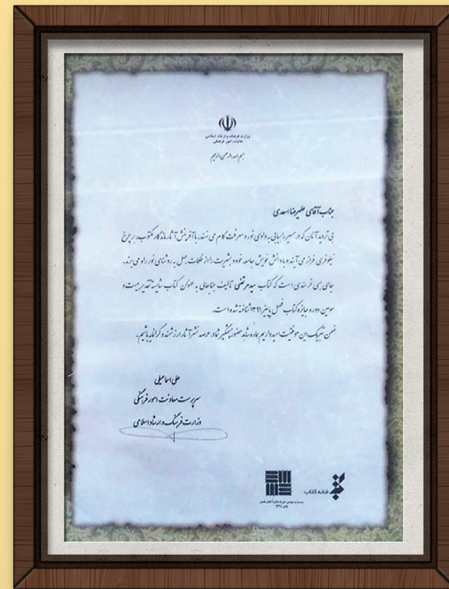 وزارت فرهنگ و ارشاد اسلامی
معاونت امور فرهنگی
بسم الله الرحمن الرحیم
جناب آقای علیرضا اسعدی
بی تردید آنان که در مسیر راهیابی به وادی نور و معرفت گام می نهند، با آفرینش آثار ماندگار مکتوب، بر چرخ
نیلوفری فراز می آیند و با دانش خویش جامعه خود و بشریت را از ظلمات جهل به روشنای نور راه می برند.
جای بسی خرسندی است که کتاب سید مرتضی تالیف جنابعالی به عنوان کتاب شایسته تقدیر بیست و
سومین دوره جایزه کتاب فصل پاییز ۱۳۹۱ شناخته شده است.
ضمن تبریک این موفقیت امیدواریم همواره شاهد حضور چشمگیر شما در عرصه نشر آثار ارزشمند و گرانمایه باشیم.
علی اسماعیلی
سرپرست معاونت امور فرهنگی
وزارت فرهنگ و ارشاد اسلامی
خانه کتاب